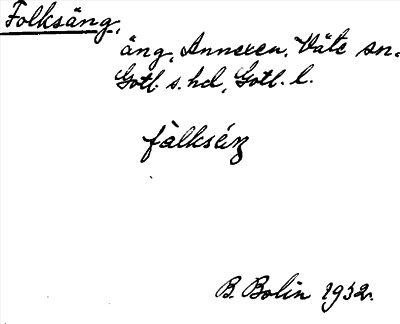 Folksäng,
äng, Annexen, Väte sn.
Gotl. s. hd, Gotl. l.
fàlkséŋ
B. Bolin 1932.